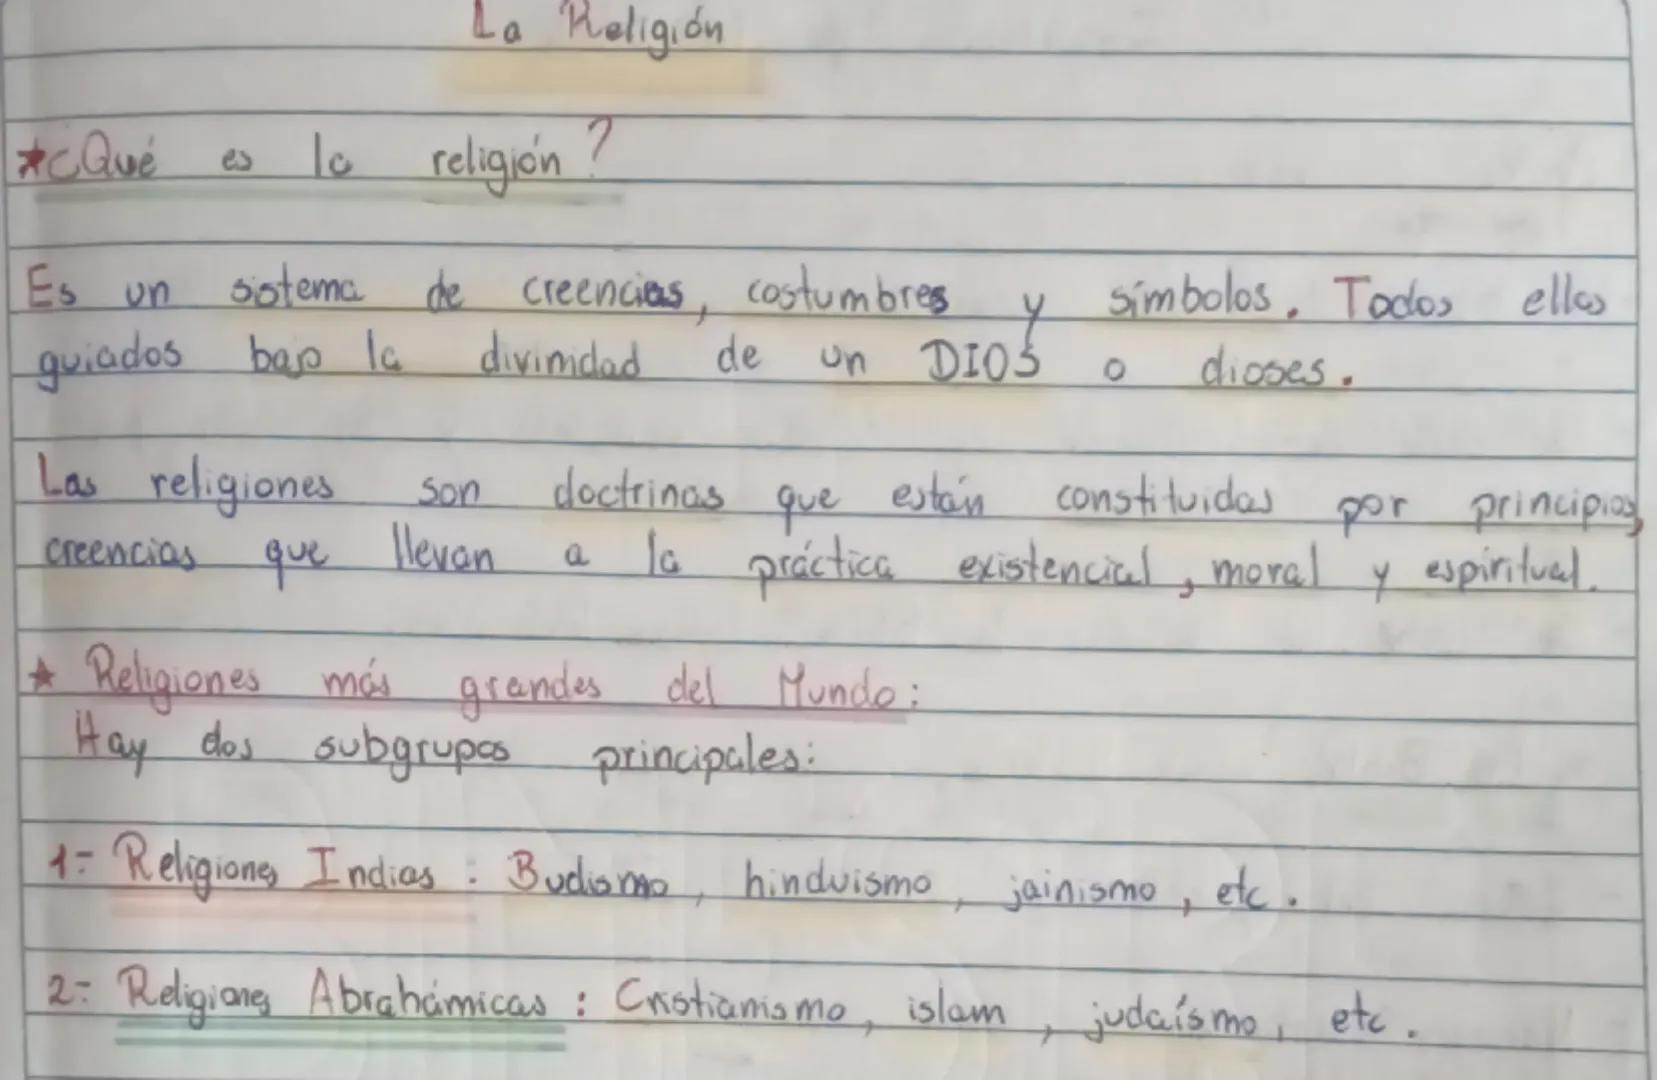 La Religión
★¿Qué es la religión?
Es un sistema de creencias, costumbres y símbolos. Todos ellos
guiados bajo la divinidad de un DIOS o dioses.
Las religiones son doctrinas que están constituidas por principios,
creencias que llevan a la práctica existencial, moral y espiritual.
★ Religiones más grandes del Mundo:
Hay dos subgrupos principales:
1- Religiones Indias: Budismo, hinduismo, jainismo, etc.
2- Religiones Abrahámicas: Cristianismo, islam, judaísmo, etc.